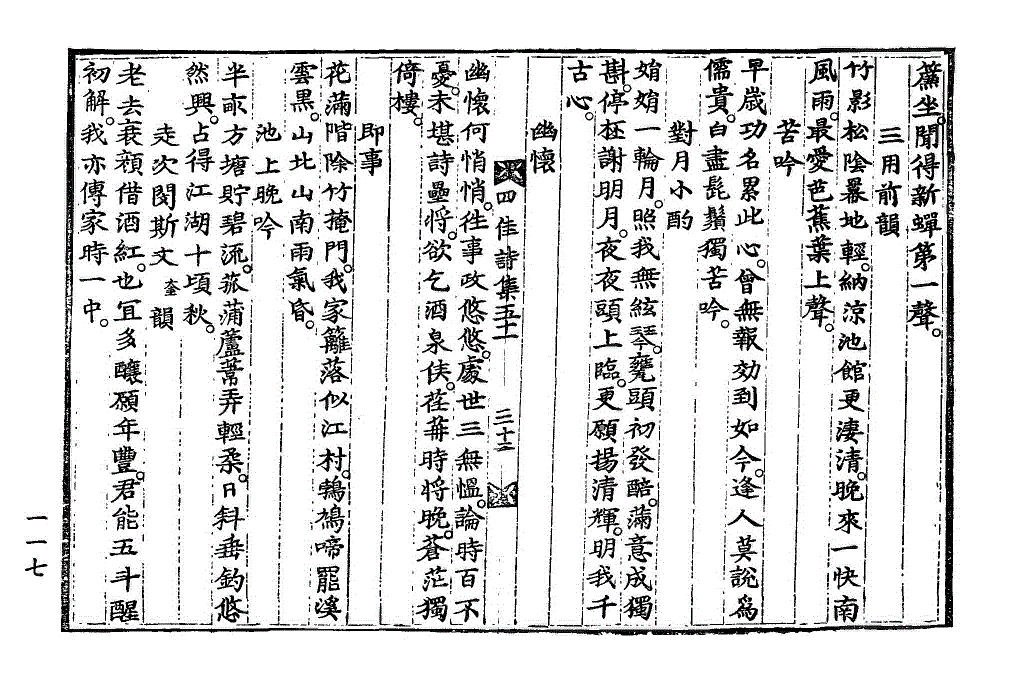 簾坐聞得新蟬第一聲。
三用前韻
竹影松陰暴地輕。納涼池館更淒清。晚來一快南
風雨。最愛芭蕉葉上聲。
苦吟
早歲功名累此心。曾無報効到如今。逢人莫說爲
儒貴。白盡髭鬚獨苦吟。
對月小酌
娟娟一輪月。照我無絃琴。甕頭初發醅。滿意成獨
斟。停杯謝明月。夜夜頭上臨。更願揚清輝。明我千
古心。
幽懷
四佳詩集五十一
三十二
幽懷何悄悄。往事政悠悠。處世三無慍。論時百不
憂。未堪詩壘將。欲乞酒泉侯。荏苒時將晚。蒼茫獨
倚樓。
即事
花滿階除竹掩門。我家籬落似江村。鵓鳩啼罷溪
雲黑。山北山南雨氣昏。
池上晚吟
半畝方塘貯碧流。菰蒲蘆葦弄輕柔。日斜垂釣悠
然興。占得江湖十頃秋。
走次閔斯文奎韻
老去衰顔借酒紅。也宜多釀願年豐。君能五斗醒
初解。我亦傳家時一中。
一一七